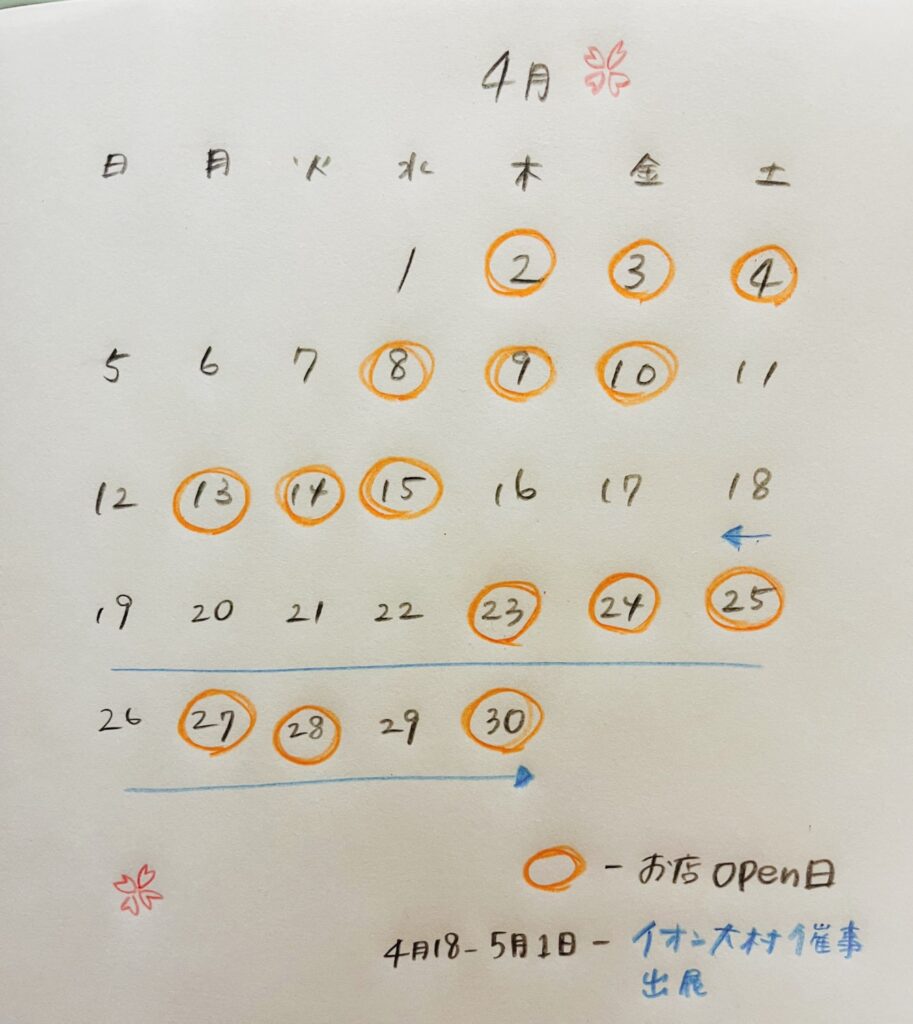 4月
日 月 火 水 木 金 土
1 2 3 4
5 6 7 8 9 10 11
12 13 14 15 16 17 18
19 20 21 22 23 24 25
26 27 28 29 30
- お店 open日
4月18-5月1日- イオン大村催事
出展